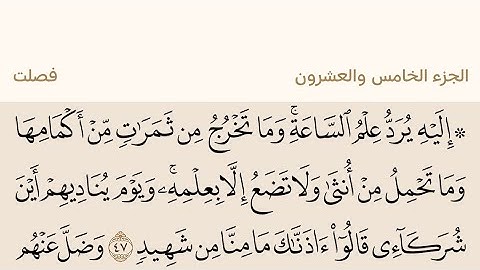 الجزء الخامس والعشرون فصلت
۞ إِلَيْهِ يُرَدُّ عِلْمُ ٱلسَّاعَةِۚ وَمَا تَخْرُجُ مِن ثَمَرَٰتٖ مِّنۡ أَكۡمَامِهَا
وَمَا تَحۡمِلُ مِنۡ أُنثَىٰ وَلَا تَضَعُ إِلَّا بِعِلۡمِهِۦۚ وَيَوۡمَ يُنَادِيهِمۡ أَيۡنَ
شُرَكَآءِي قَالُوٓاْ ءَاذَنَّٰكَ مَا مِنَّا مِن شَهِيدٖ ٤٧ وَضَلَّ عَنۡهُم